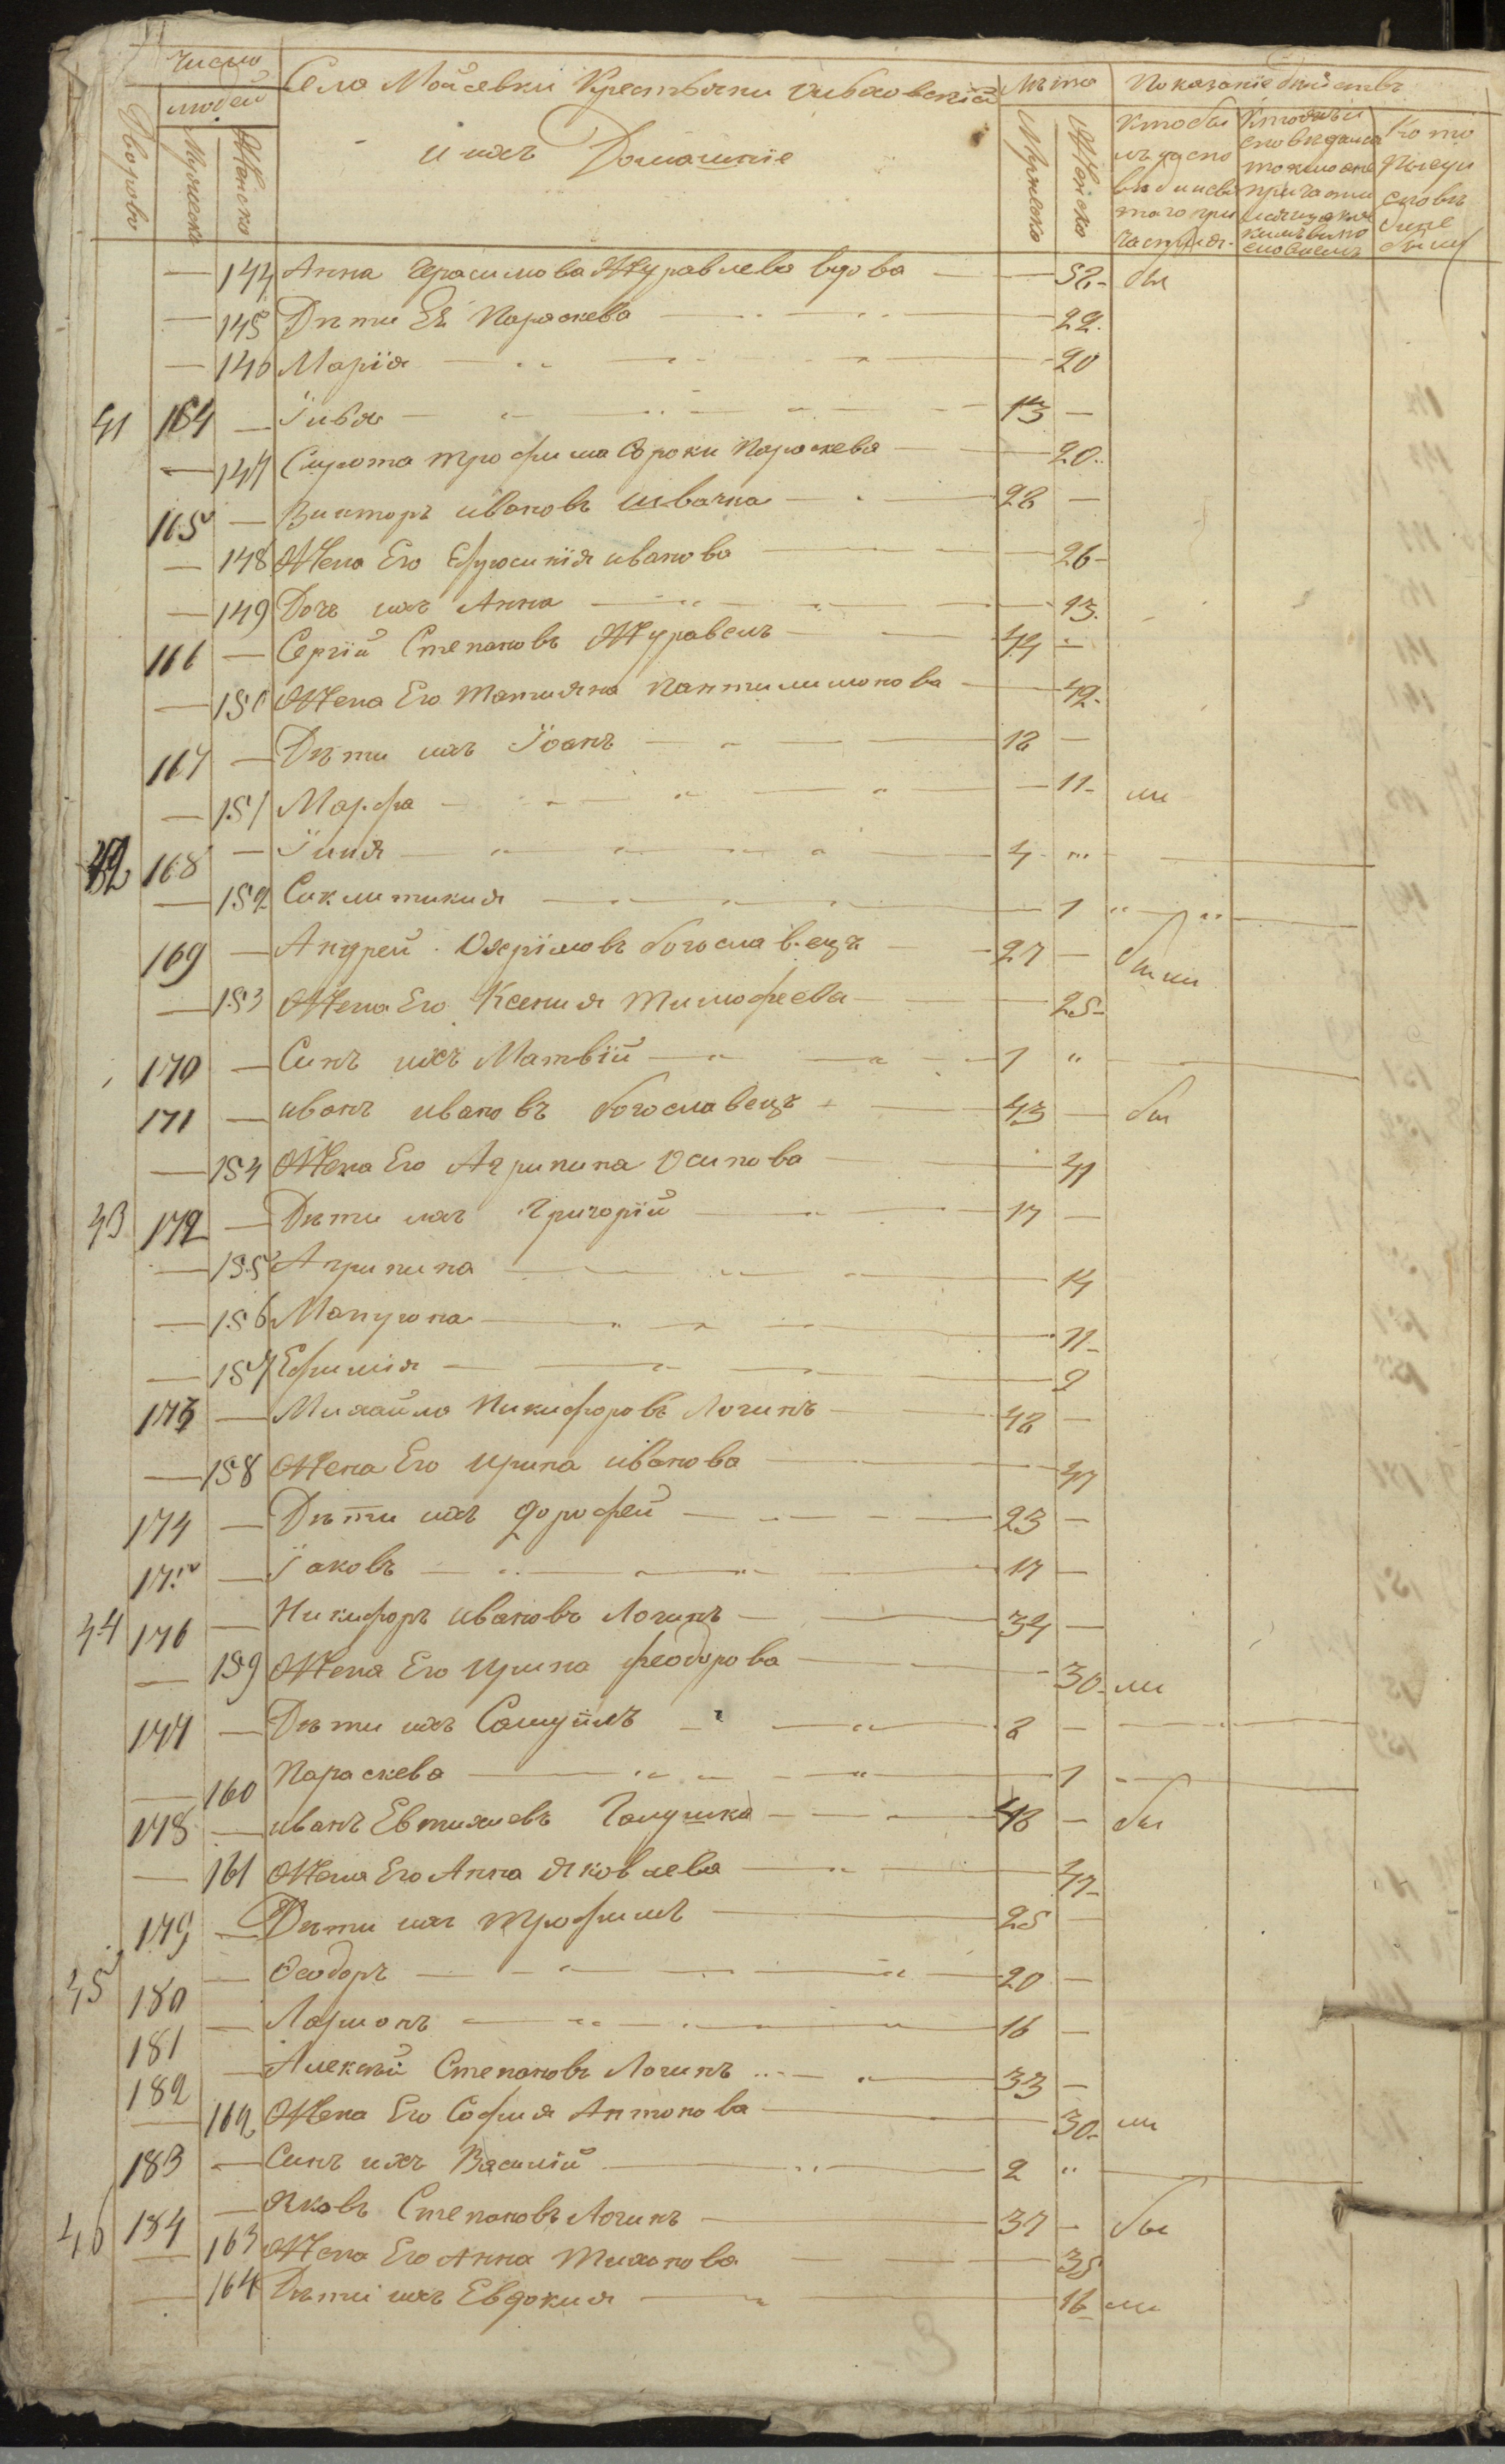 Число людей
Дворовъ
Мужеска
Женска
Села Мойсевки Крестьяни
и ихъ Домашніе
Лѣта
Мужеска
Женска
Показаніе дѣйствъ
Кто бы
— 144 Анна Герасимова Журавлева вдова — 52 бы
— 145 Дѣти Её Параскева — 22
— 146 Марія — 20
41 164 — Іивъ — 13 —
— 147 Сирота Трофима Сороки Параскева — 20
165 — Викторъ Ивановъ Швачка — 28 —
— 148 Жена Его Ефросинія Иванова — 26
— 149 Дочь ихъ Анна — 13
166 — Сергій Степановъ Журавель — 44 —
— 150 Жена Его Татияна Пантилимонова — 42
167 — Дѣти ихъ Іоанъ — 18 —
— 151 Марфа — 11 ли
42 168 — — 4
— 152 Сиклитикия — 1
169 — Андрей Охрімовъ Богославецъ — 27 — были
— 153 Жена Его Ксения Тимофеева — 25
170 — Синъ ихъ Матвій — 1 "
171 — Иванъ Ивановъ Богославецъ — 43 — бы
— 154 Жена Его Агрипина Осипова — 41
43 172 — Дѣти ихъ Григорій — 17 —
— 155 Агрипина — 14
— 156 — 11
— 157 Ефимія — 9
173 — Михайло Никифоровъ Логинъ — 48 —
— 158 Жена Его Ирина Иванова — 47
174 — Дѣти ихъ Дорофей — 23 —
175 — Іаковъ — 17 —
44 176 — Никифоръ Ивановъ Логинъ — 34 —
— 159 Жена Его Ирина Феодорова — 30 ли
177 — Дѣти ихъ Самуїлъ — 8 —
— 160 Параскева — 1
178 — Иванъ Евтихиевъ Галушка — 48 — бы
— 161 Жена Его Анна Яковлева — 47
179 — Дѣти ихъ Трофимъ — 25 —
45 180 — Ѳеодоръ — 20 —
181 — Ларионъ — 16 —
182 — Алексѣй Степановъ Логинъ — 33 —
— 162 Жена Его София Антонова — 30 ли
183 — Синъ ихъ Василій — 2 "
46 184 — Яковъ Степановъ Логинъ — 37 — бы
— 163 Жена Его Анна Тихонова — 35
— 164 Дѣти ихъ Евдокия — 16 ли